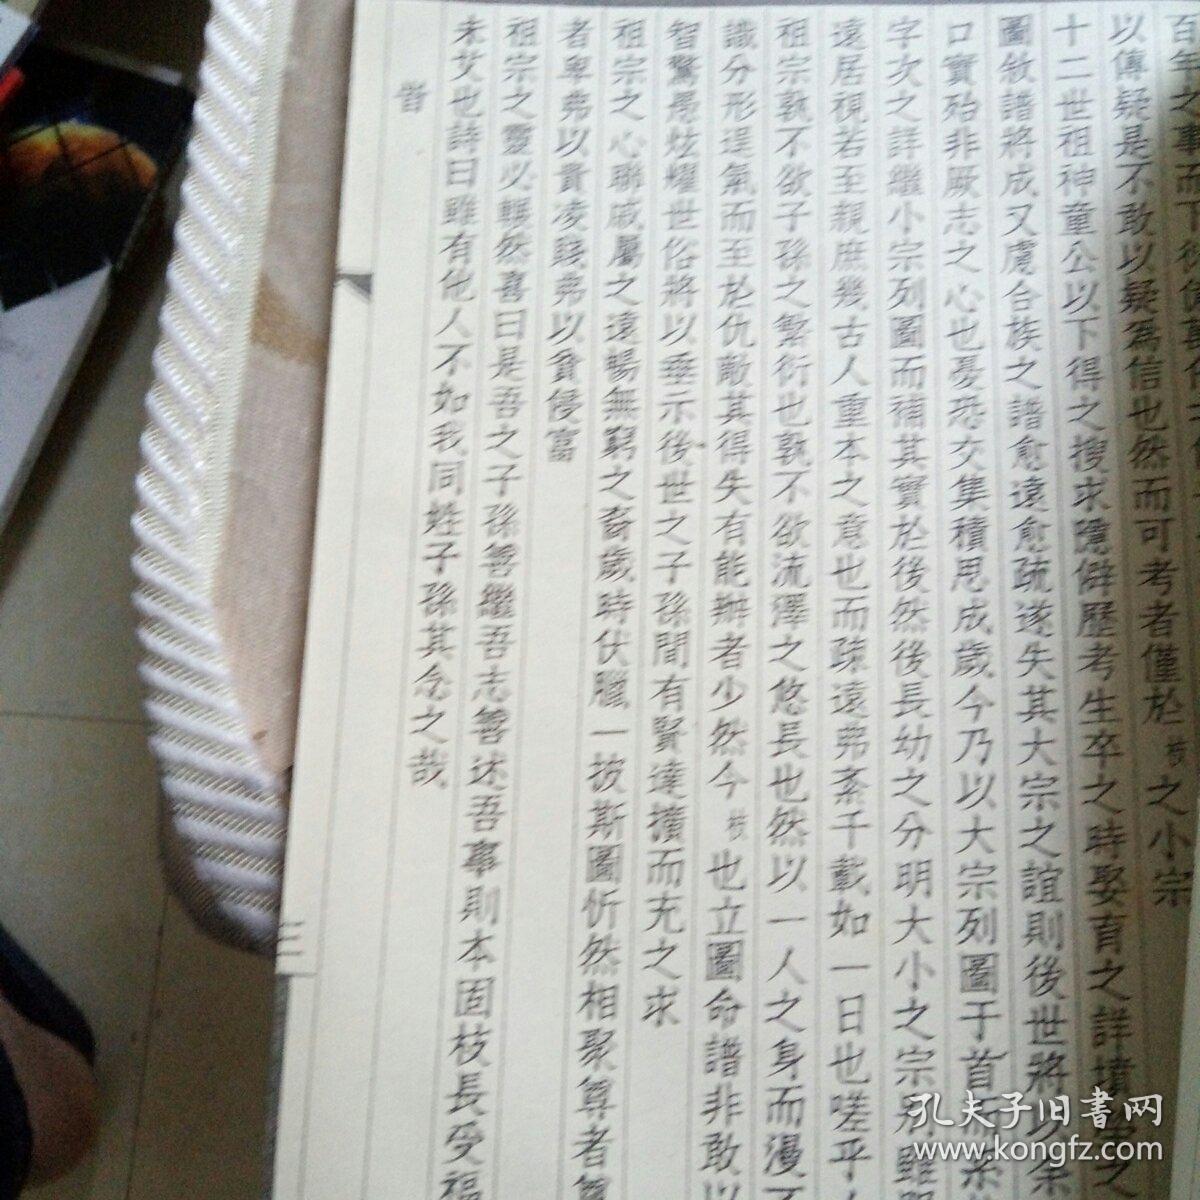 百年之事而下後
以傳疑是不敢以疑為信也然而可考者僅於枝之小宗
十二世祖神童公以下得之搜求隱僻歷考生卒之時娶育之詳墳
圖敘譜將成又慮合族之譜愈遠愈疏遂失其大宗之誼則後世將以余
口實殆非厥志之心也憂恐交集積思成歲今乃以大宗列圖于首而系
字次之詳繼小宗列圖而補其實於後然後長幼之分明大小之宗別雖
遠居視若至親庶幾古人重本之意也而疎遠弗紊千載如一日也嗟乎人
祖宗孰不欲子孫之繁衍也孰不欲流澤之悠長也然以一人之身而漫不
識分形逞氣而至於仇敵其得失有能辦者少然今枝也立圖命譜非敢以
智驚愚炫耀世俗將以垂示後世之子孫間有賢達擴而充之求
祖宗之心聯戚屬之遠暢無窮之裔歲時伏臘一披斯圖忻然相聚尊者尊
者卑弗以貴凌賤弗以貧侵富
祖宗之靈必輾然喜曰是吾之子孫善繼吾志善述吾事則本固枝長受福
未艾也詩曰雖有他人不如我同姓子孫其念之哉
旹
三
孔夫子旧书网
www.kongfz.com